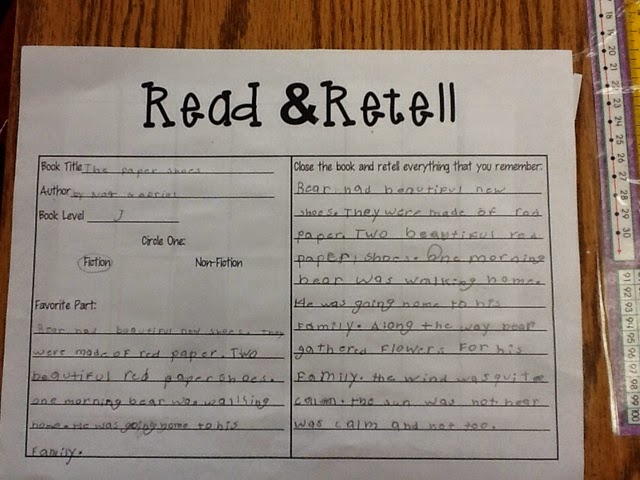 Read & Retell
Book Title The paper shoes
Author by Nat Gabriel
Book Level J
Circle One:
Fiction Non-Fiction
Favorite Part:
Bear had beautiful new shoes. They
were made of red paper. Two
beautiful red paper shoes.
one morning bear was walking
home. He was going home to his
Family.
Close the book and retell everything that you remember:
Bear had beautiful new
shoes. They were made of red
paper. Two beautiful red
paper shoes. One morning
bear was walking home.
He was going home to his
Family. Along the way bear
gathered Flowers For his
Family. the wind was quite
calm. the sun was not hear
was calm and not too.
18
19
20
21
22
23
24
25
26
27
28
29
30
91 92 93 94 95 96 97 98 99 100